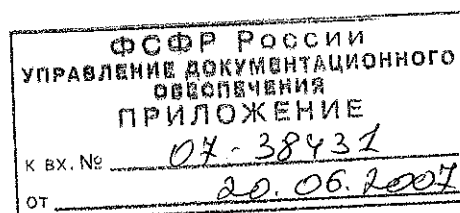 ФСФР России
УПРАВЛЕНИЕ ДОКУМЕНТАЦИОННОГО
ОБЕСПЕЧЕНИЯ
ПРИЛОЖЕНИЕ
К ВХ. № 07-38431
ОТ 20.06.2007